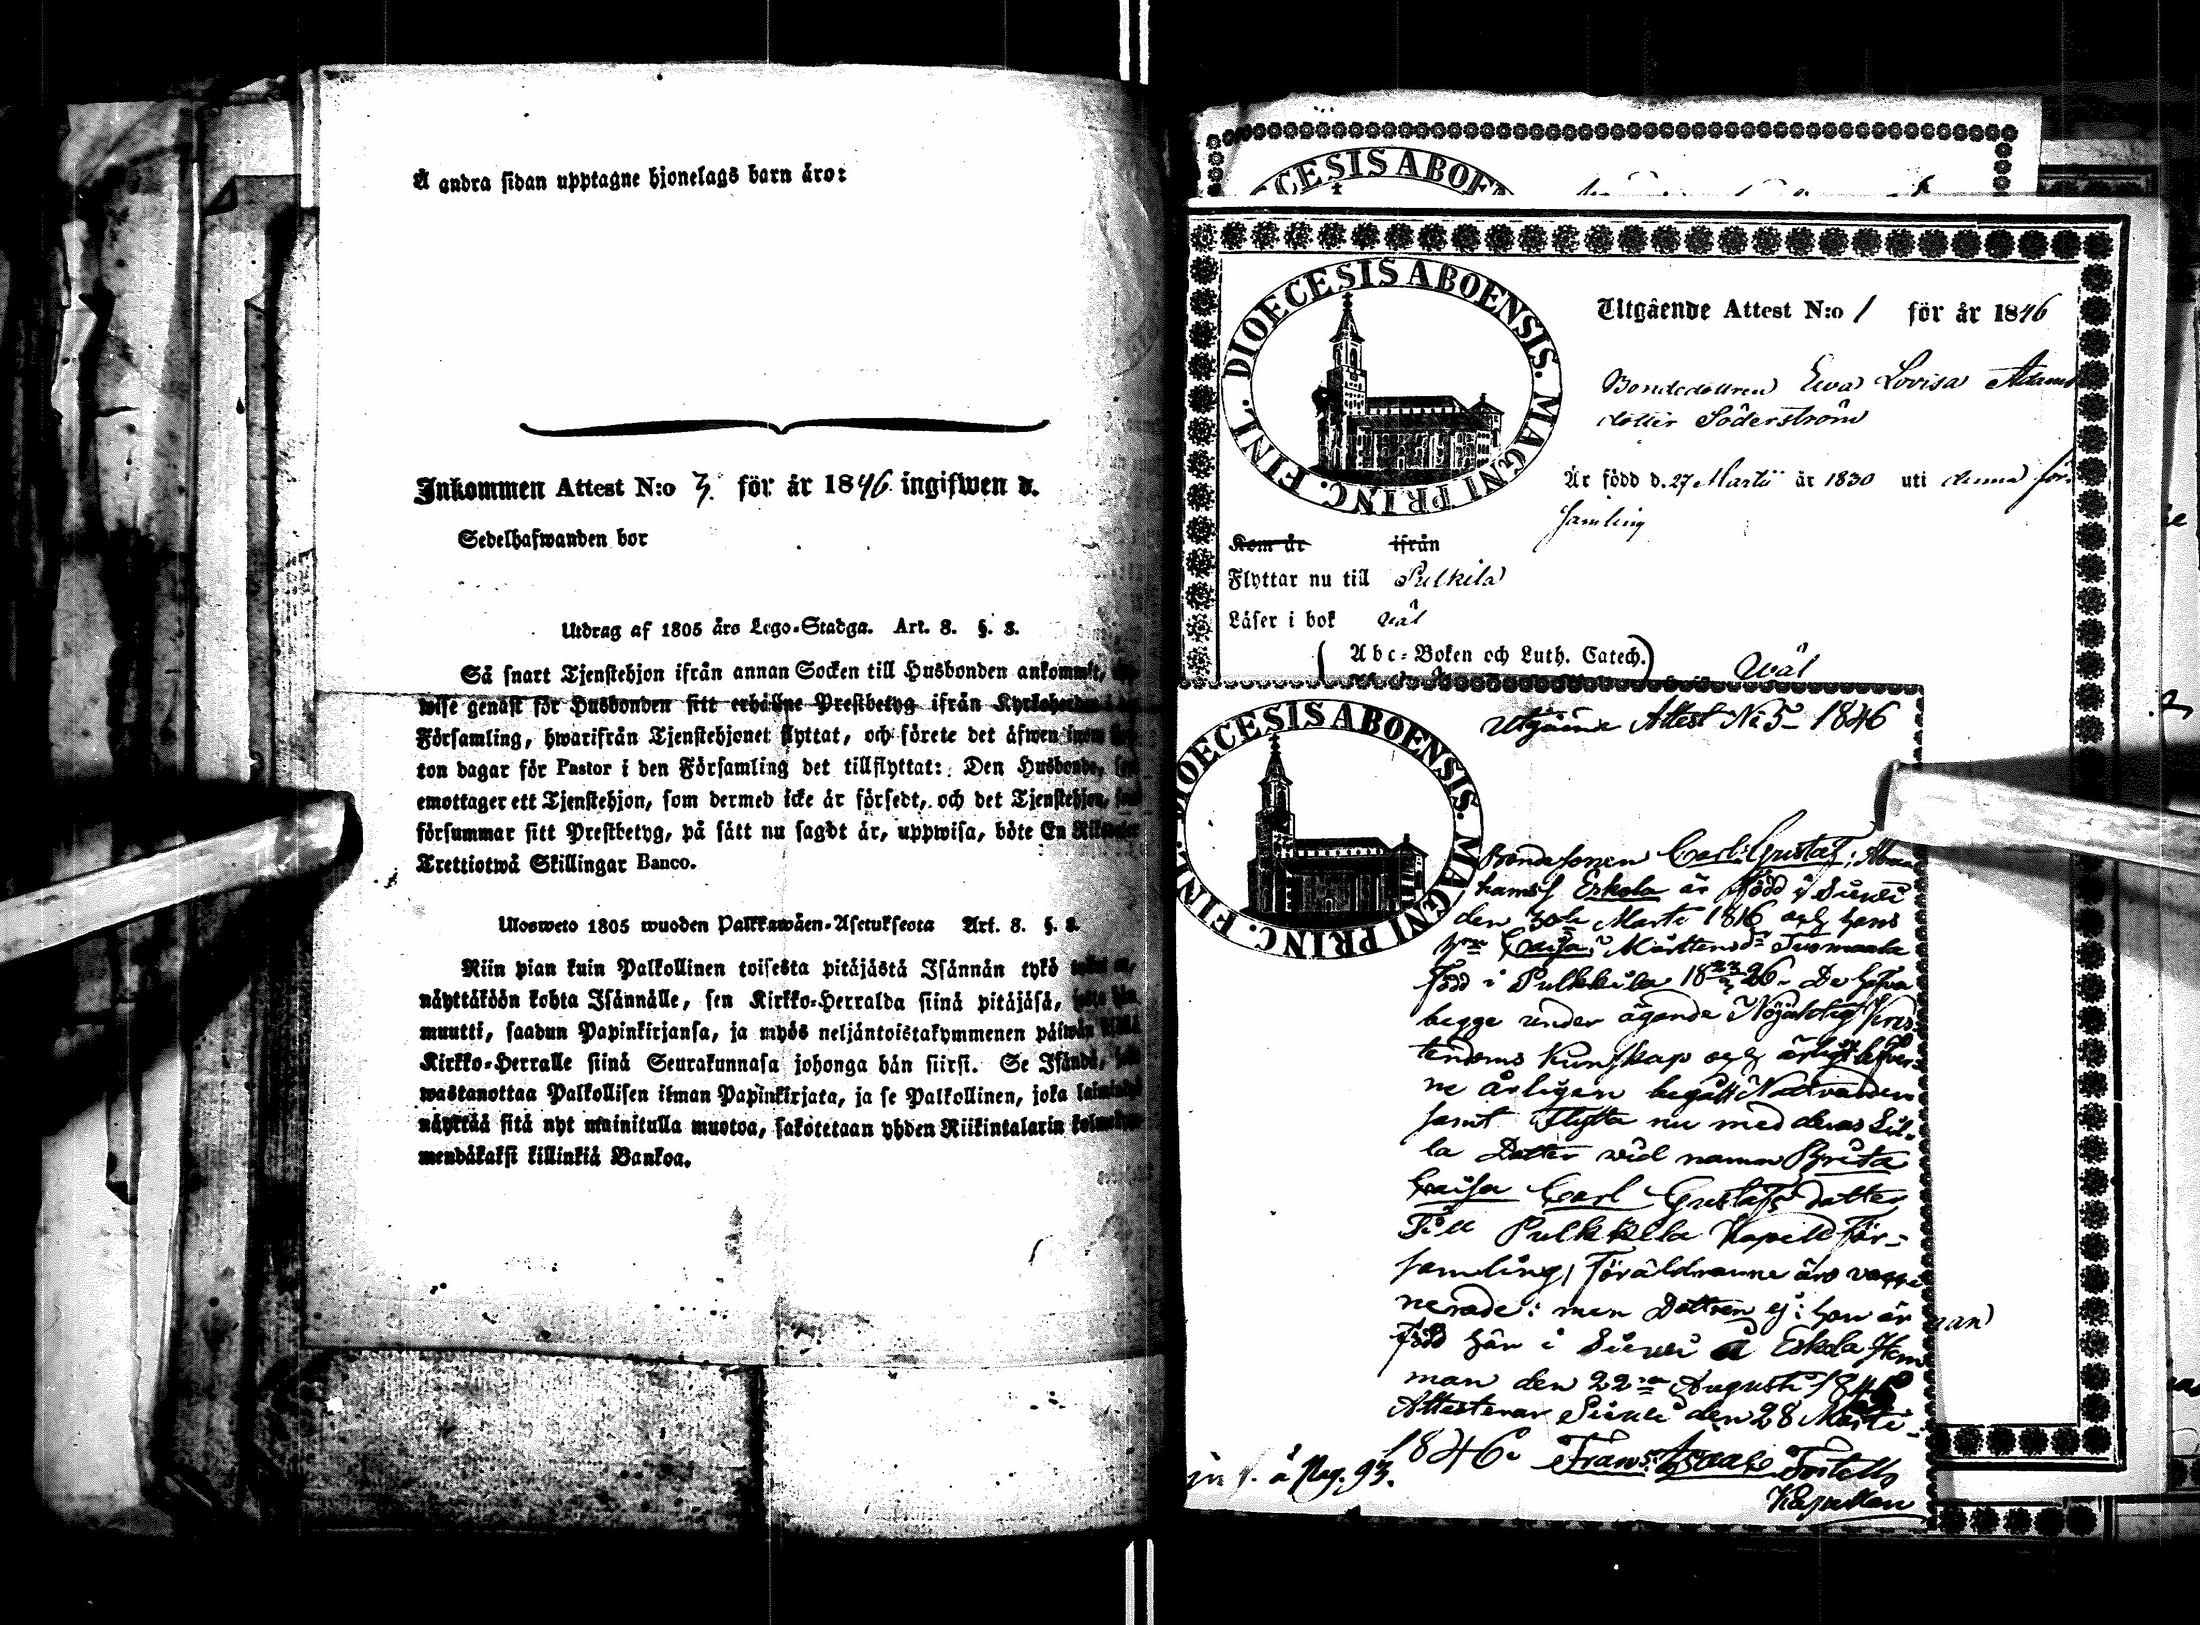 Å andra sidan upptagne hjonelags barn äro:
Inkommen Attest N:o 3. för år 1846 ingifwen d.
Sedelhafwanden bor
Utdrag af 1805 års Lego-Stadga. Art. 8. §. 8.
Så snart Tjenstehjon ifrån annan Socken till Husbonden ankommit,
wise genast för Husbonden sitt erhållne Prestbetyg ifrån Kyrkoherden i
Församling, hwarifrån Tjenstehjonet flyttat, och förete det äfwen inom
ton dagar för Pastor i den Församling det tillflyttat: Den Husbonde,
emottager ett Tjenstehjon, som dermed icke är försedt, och det Tjenstehjon,
försummar sitt Prestbetyg, på sätt nu sagdt är, uppwisa, böte En Riksdaler
Trettiotwå Skillingar Banco.
Ulosweto 1805 wuoden Palkkawäen-Asetuksesta Art. 8. §. 8.
Niin pian kuin Palkollinen toisesta pitäjästä Isännän tykö
näyttäköön kohta Isännälle, sen Kirkko-Herralda siinä pitäjäsä,
muutti, saadun Papinkirjansa, ja myös neljäntoistakymmenen päiwän
Kirkko-Herralle siinä Seurakunnasa johonga hän siirsi. Se Isändä,
wastanottaa Palkollisen ilman Papinkirjata, ja se Palkollinen, joka
näyttää sitä nyt mainitulla muotoa, sakotetaan yhden Riikintalarin
mendäkaksi killinkiä Bankoa.
CESIS ABOEN
DIOECESIS ABOENSIS. MAGNI PRINC. FINL.
Utgående Attest N:o 1 för år 1846
Bondedottren Ewa Lovisa Adams
dotter Söderström
Är född d. 27 Martii år 1830 uti denna för-
samling
Kom år ifrån
Flyttar nu till Pulkila
Läser i bok wäl
(Abc-Boken och Luth. Catech.) Wäl
DIOECESIS ABOENSIS. MAGNI PRINC. FINL.
Utgående Attest No 5 1846
Bondesonen Carl Gustaf Abra
hamss Eskola är född i Siewi
den 30de Marti 1816 och hans
hru Caisa Mårtensdr Tuomaala
född i Pulkkila 18 26. De hafva
begge under ägande Nöjaktig Kris-
tendoms Kunskap och ärligt lefver-
ne årligen begått Nattvarden
samt Flytta nu med deras Lil-
la Dotter vid namn Brita
Caisa Carl Gustafsdotter
Till Pulkkila Kapell För-
samling, Föräldrarne äro vacci
nerade: men Dottren ej: hon är
född här i Siewi å Eskola Hem
man den 22ra Augusti
Attesterar Siewi den 28 Marti
1846. Frans Isaac
Kapellan
å Pag. 93.